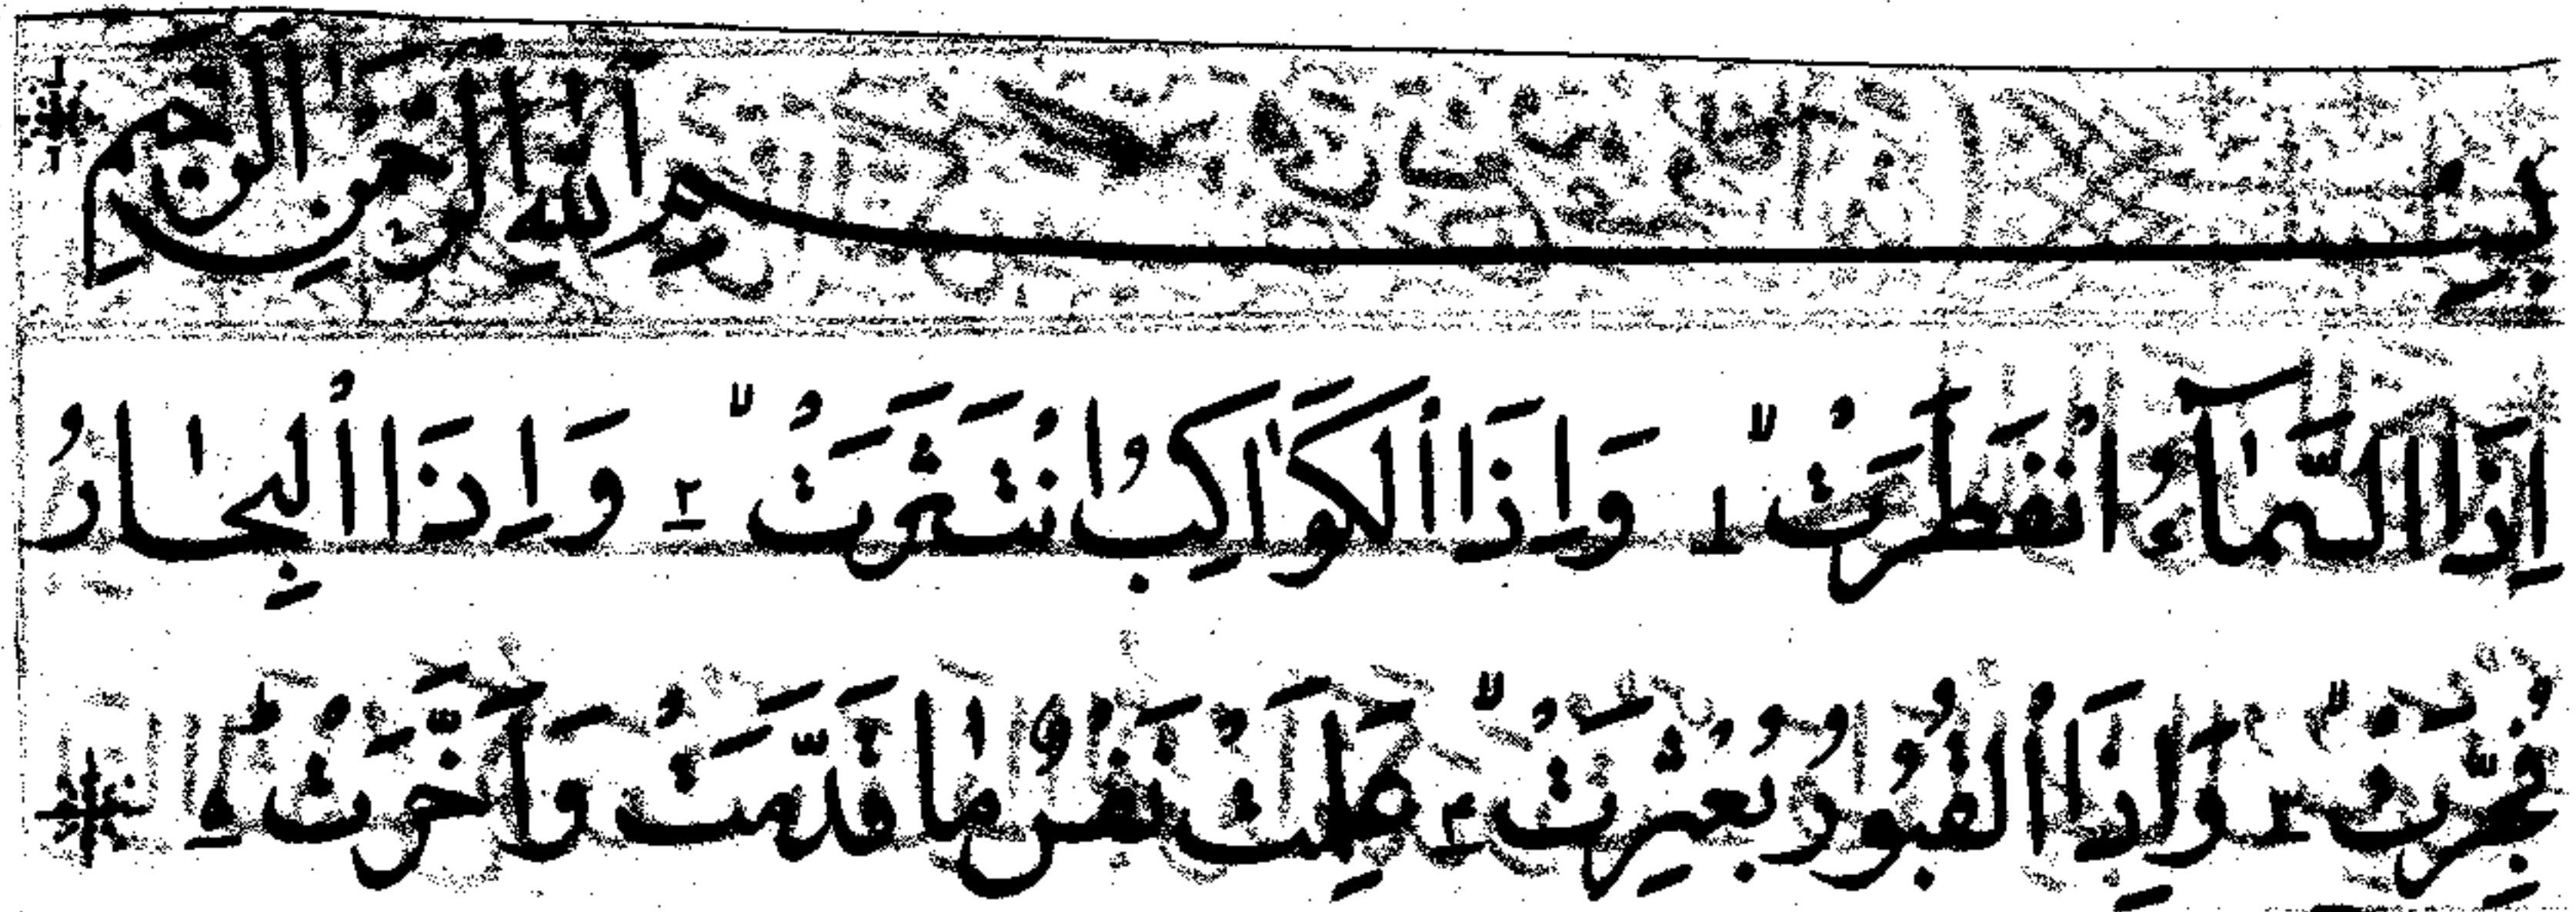 بِسْمِ اللّٰهِ الرَّحْمٰنِ الرَّحِيْمِ
اِذَا السَّمَآءُ انْفَطَرَتْ ۙ ١ وَاِذَا الْكَوَاكِبُ انْتَثَرَتْ ۙ ٢ وَاِذَا الْبِحَارُ
فُجِّرَتْ ۙ ٣ وَاِذَا الْقُبُوْرُ بُعْثِرَتْ ۙ ٤ عَلِمَتْ نَفْسٌ مَّا قَدَّمَتْ وَاَخَّرَتْ ۗ